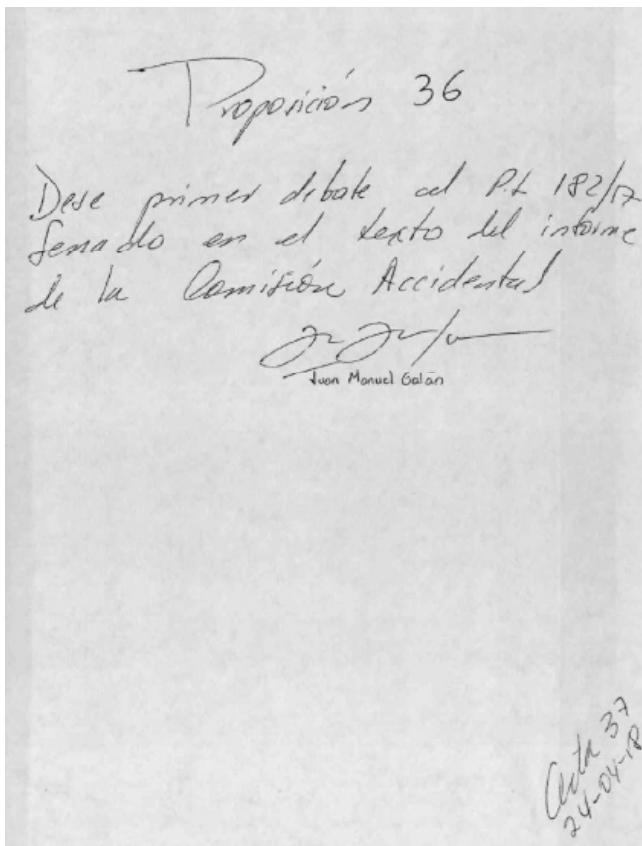 Proposición 36
Dese primer debate al P.L 182/17
Senado en el texto del informe
de la Comisión Accidental
Juan Manuel Galán
Acta 37
24-04-18